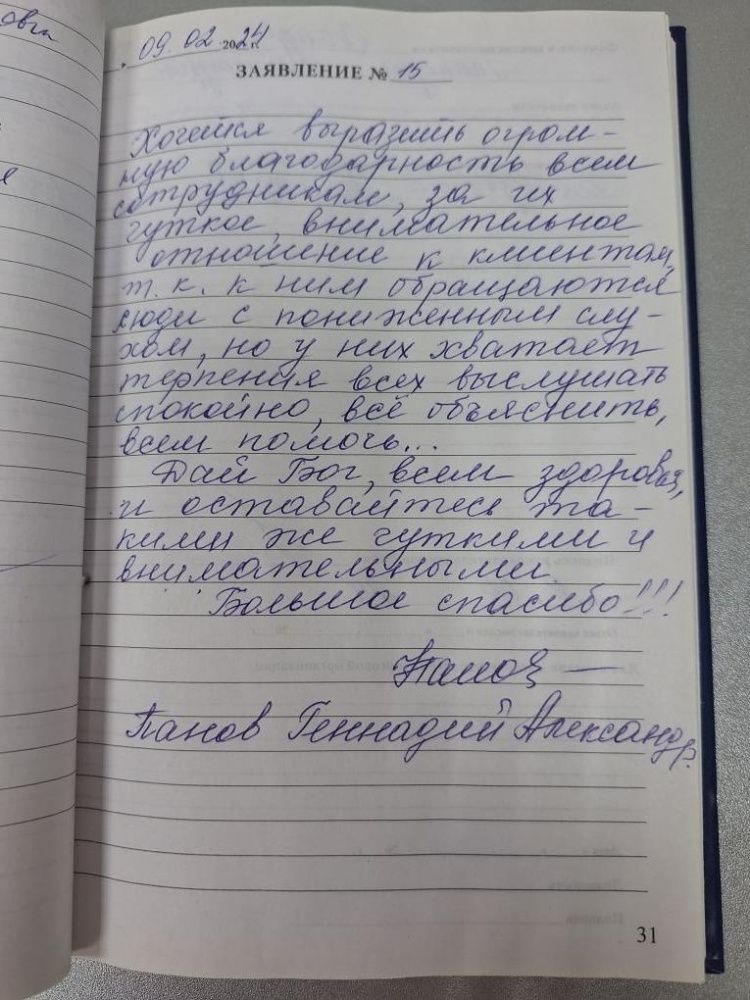 овги
я
09.02 2024 г.
ЗАЯВЛЕНИЕ № 15
Хочется выразить огром-
ную благодарность всем
сотрудникам, за их
чуткое, внимательное
отношение к клиентам,
т.к. к ним обращаются
люди с пониженным слу-
хом, но у них хватает
терпения всех выслушать
спокойно, всё объяснить,
всем помочь...
Дай Бог, всем здоровья,
и оставайтесь та-
кими же чуткими и
внимательными.
Большое спасибо!!!
Панов
Панов Геннадий Александр.
31